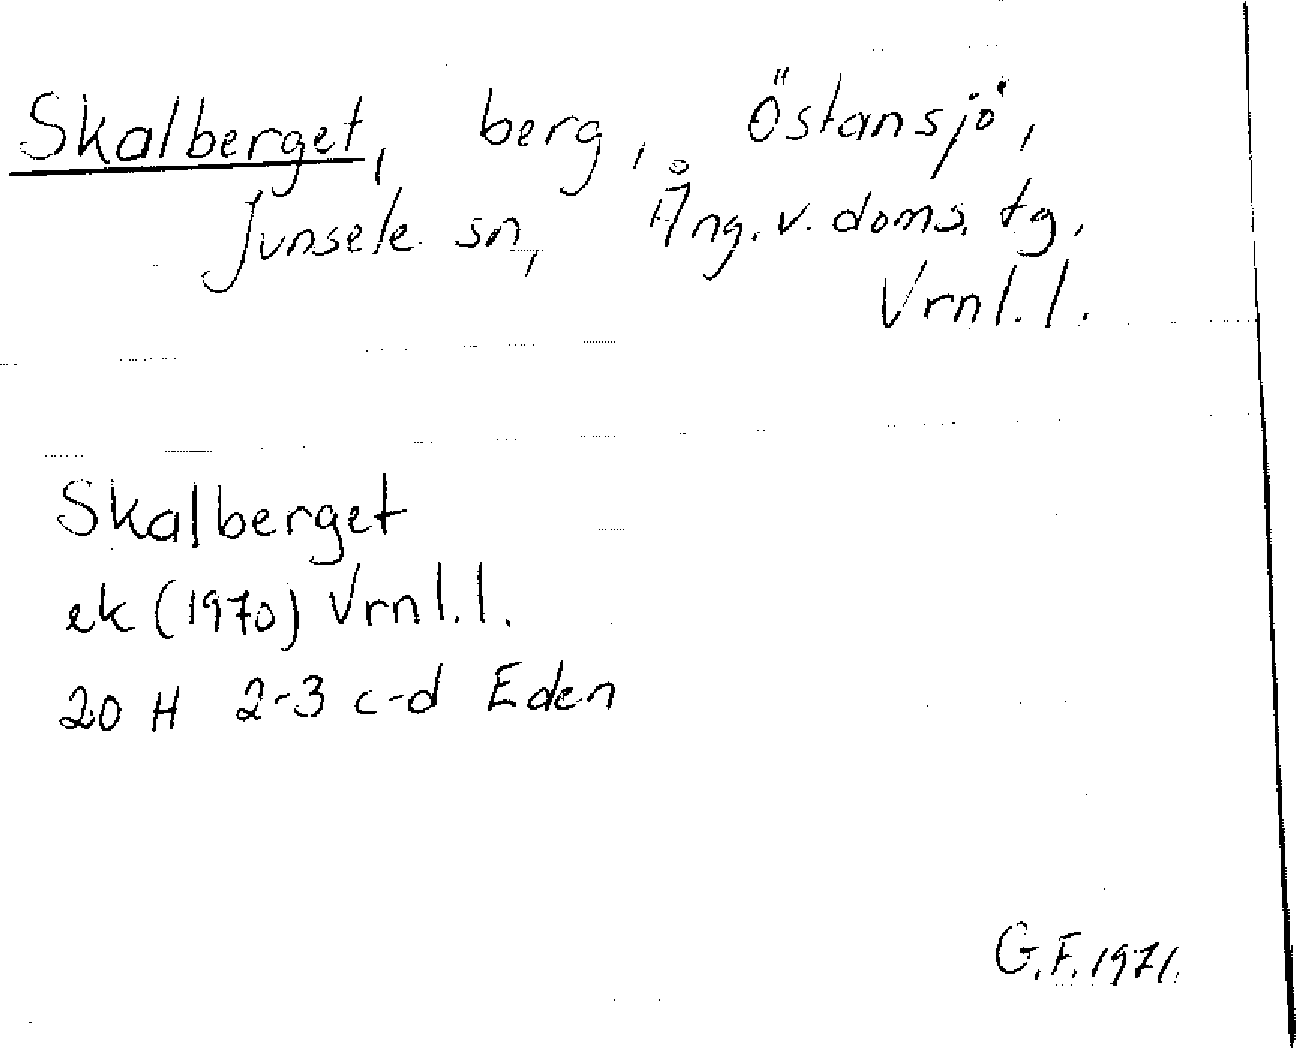 Skalberget, berg, Östansjö,
Junsele sn, Ång. v. doms. tg,
Vrnl. l.
Skalberget
ek (1970) Vrnl. l.
20 H 2-3 c-d Eden
G. F. 1971.